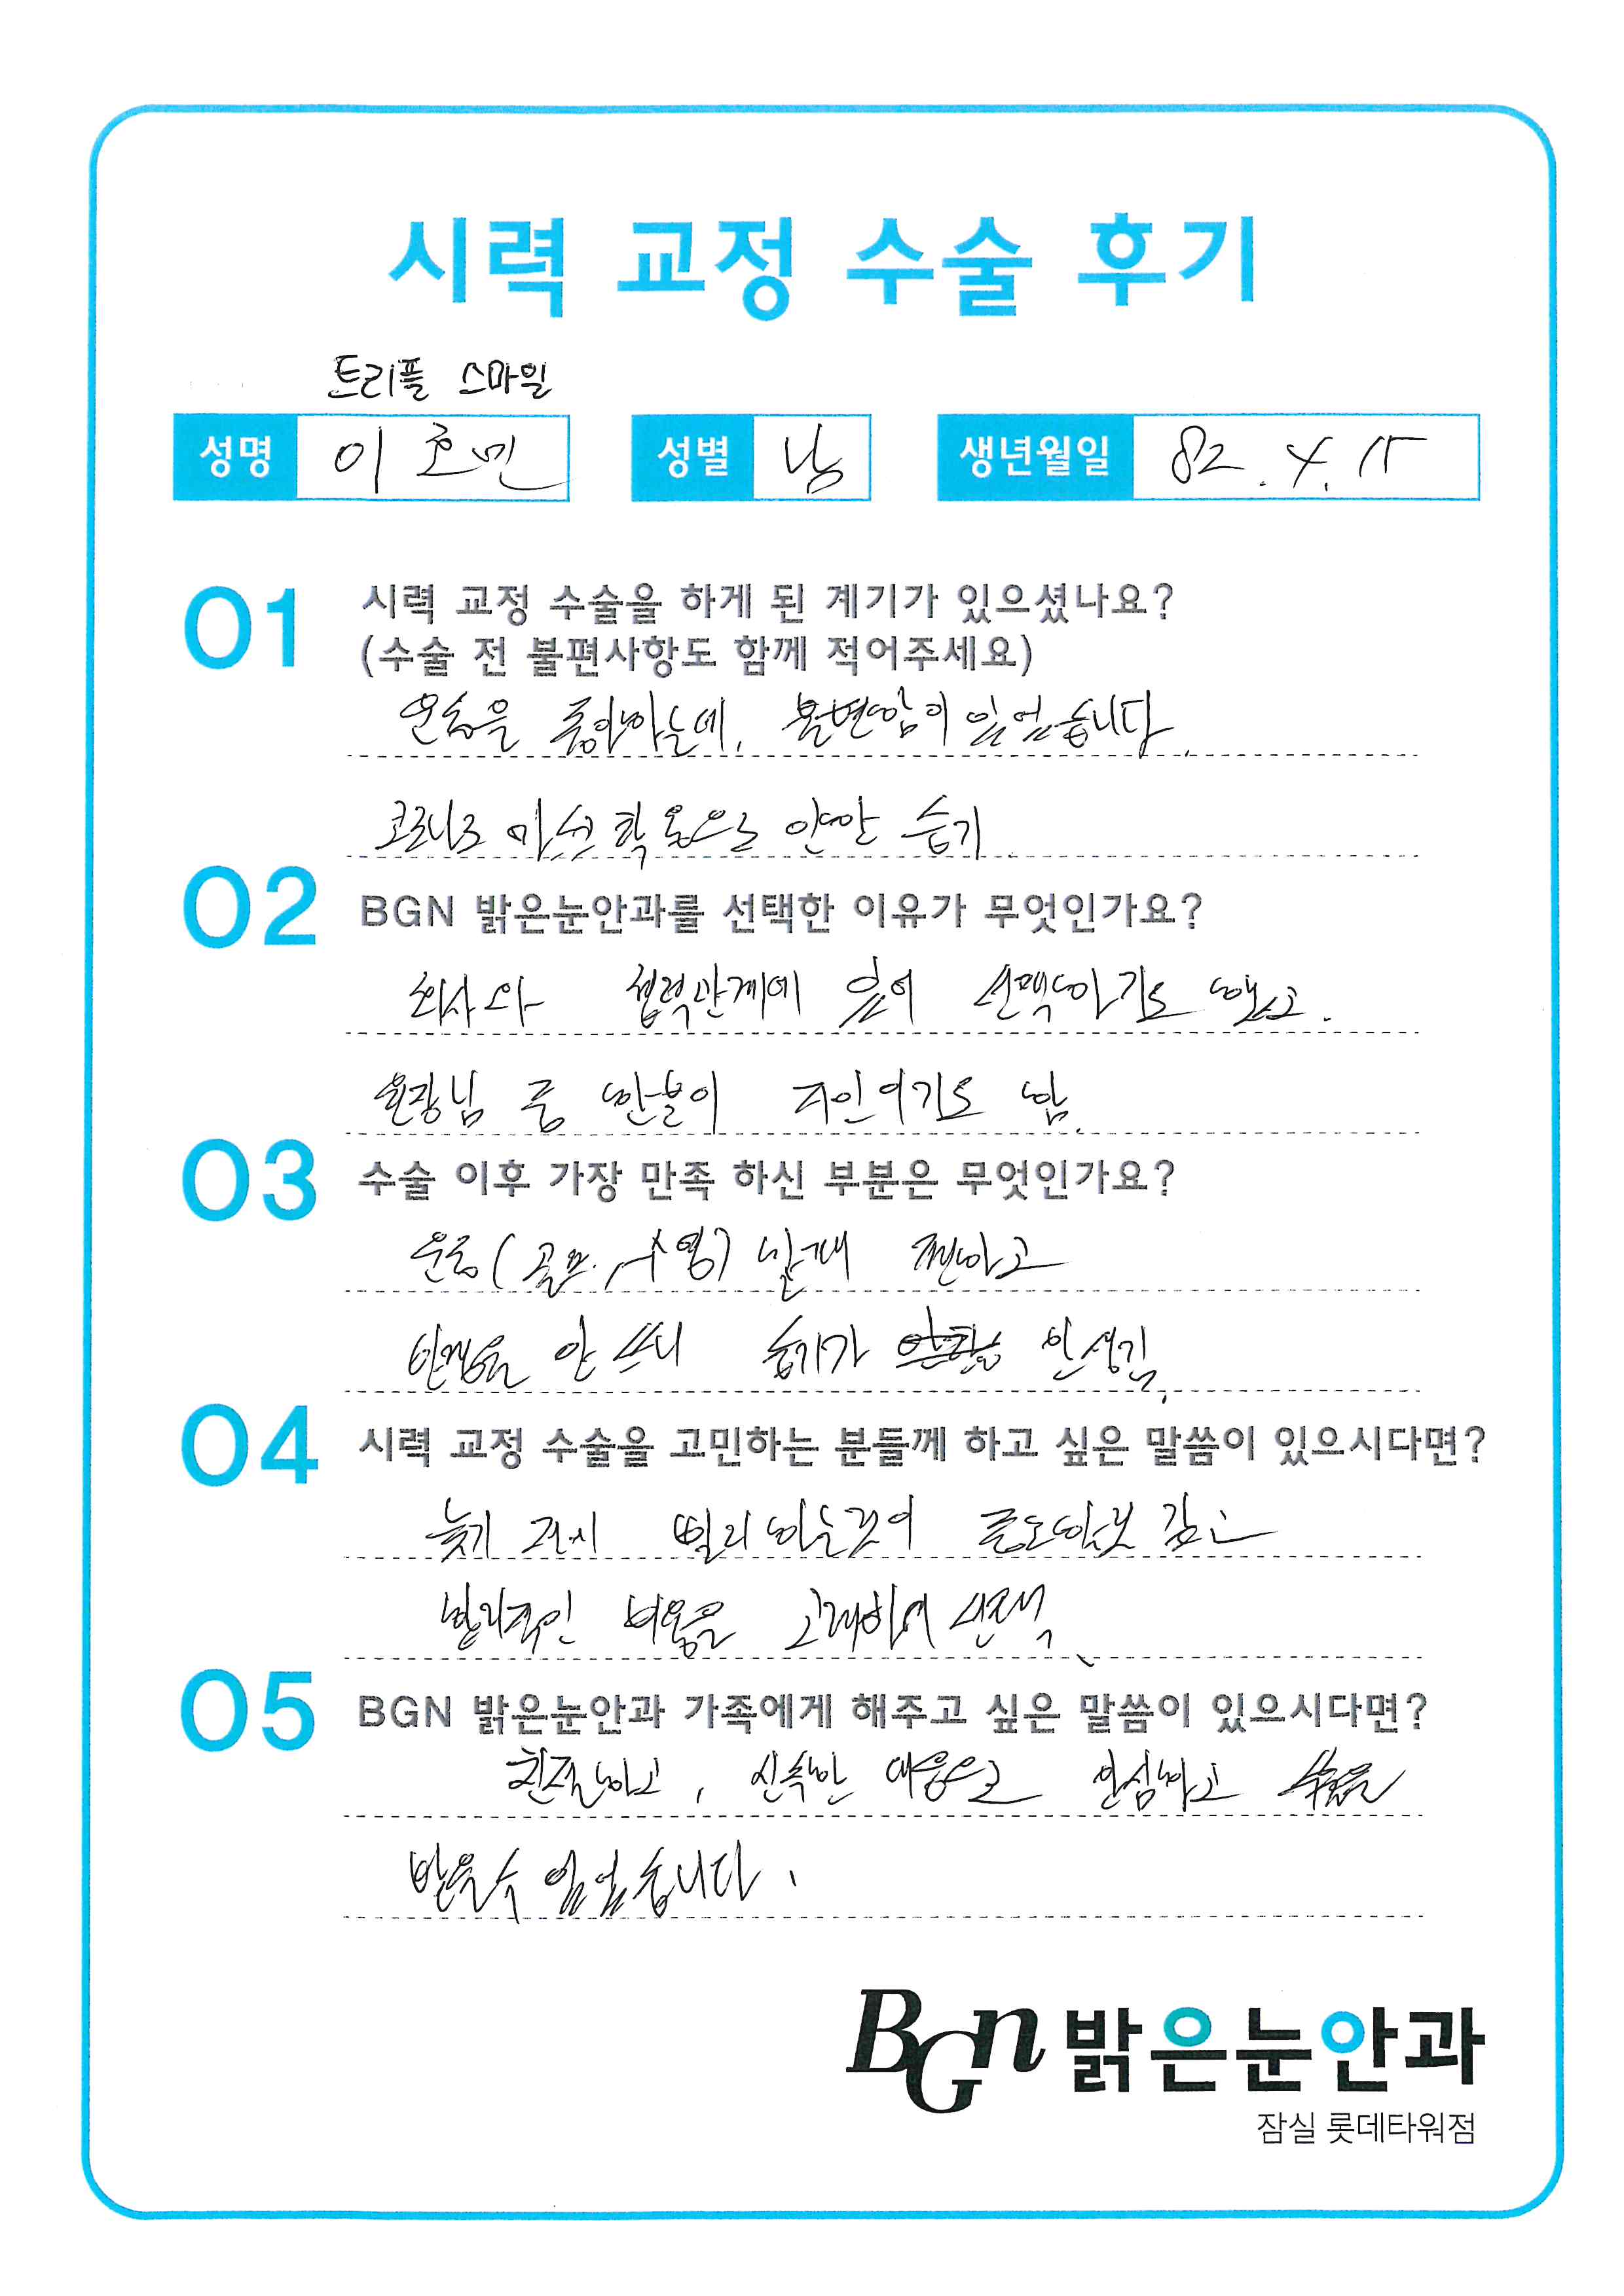 시력 교정 수술 후기
트리플 스마일
성명 이호민 성별 남 생년월일 82. 4. 15
01 시력 교정 수술을 하게 된 계기가 있으셨나요?
(수술 전 불편사항도 함께 적어주세요)
운동을 좋아하는데, 불편함이 있었습니다.
코로나로 마스크 착용으로 안경 습기
02 BGN 밝은눈안과를 선택한 이유가 무엇인가요?
회사와 협력관계에 있어 선택하기도 했고.
원장님 중 한분이 지인이기도 함.
03 수술 이후 가장 만족 하신 부분은 무엇인가요?
운동(골프, 수영) 할때 편하고
안경을 안 쓰니 습기가 안생김.
04 시력 교정 수술을 고민하는 분들께 하고 싶은 말씀이 있으시다면?
늦기 전에 빨리 하는것이 좋은
합리적인 비용을 고려하여 선택.
05 BGN 밝은눈안과 가족에게 해주고 싶은 말씀이 있으시다면?
친절하고, 신속한 대응으로 안심하고 수술을
받을수 있었습니다.
BGN 밝은눈안과
잠실 롯데타워점